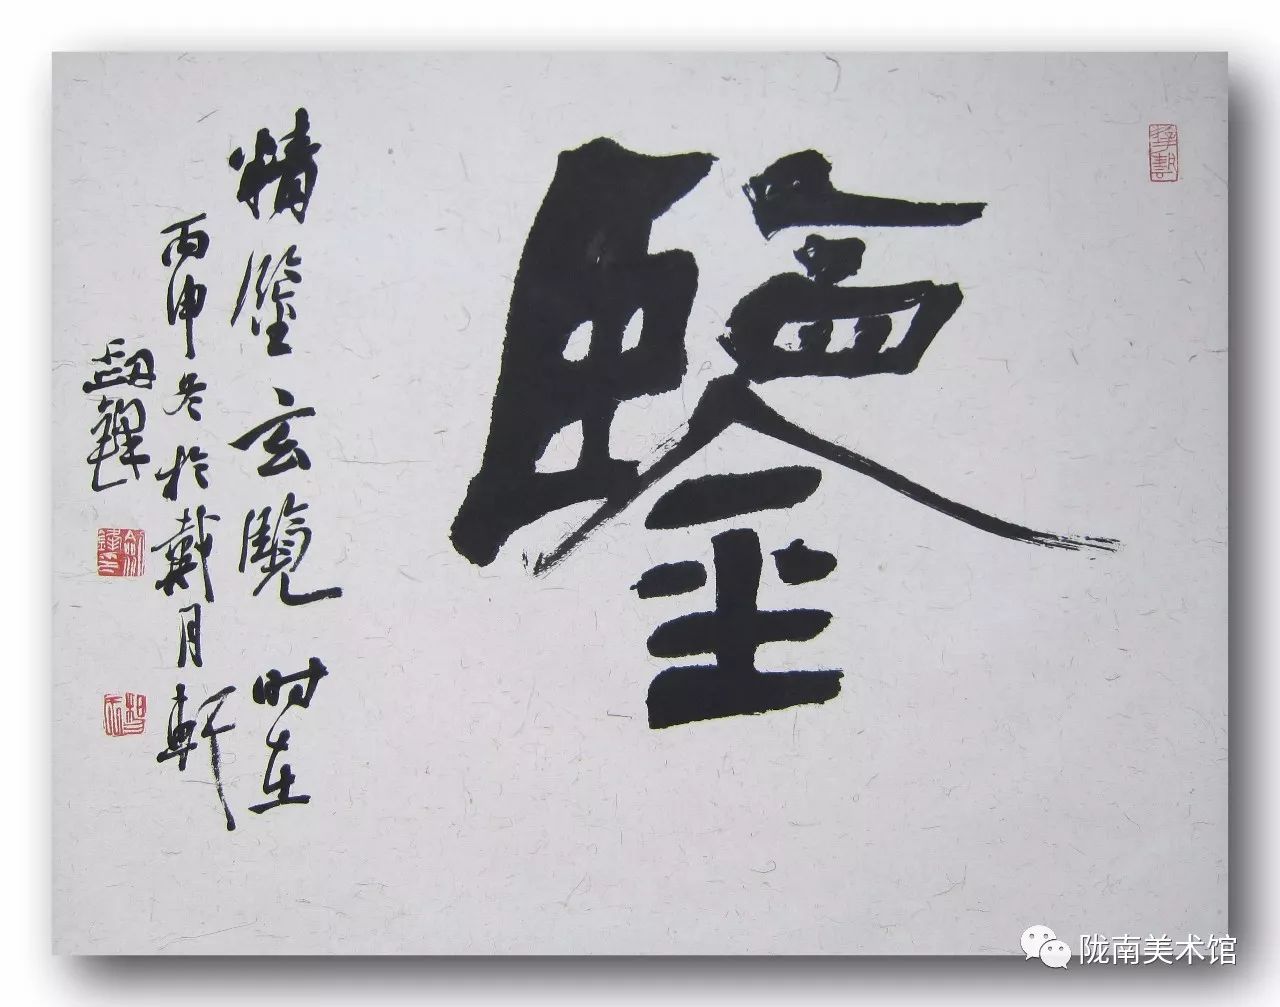 鑒
精鑒玄覽时在
丙申冬於戴月軒
陇南美术馆